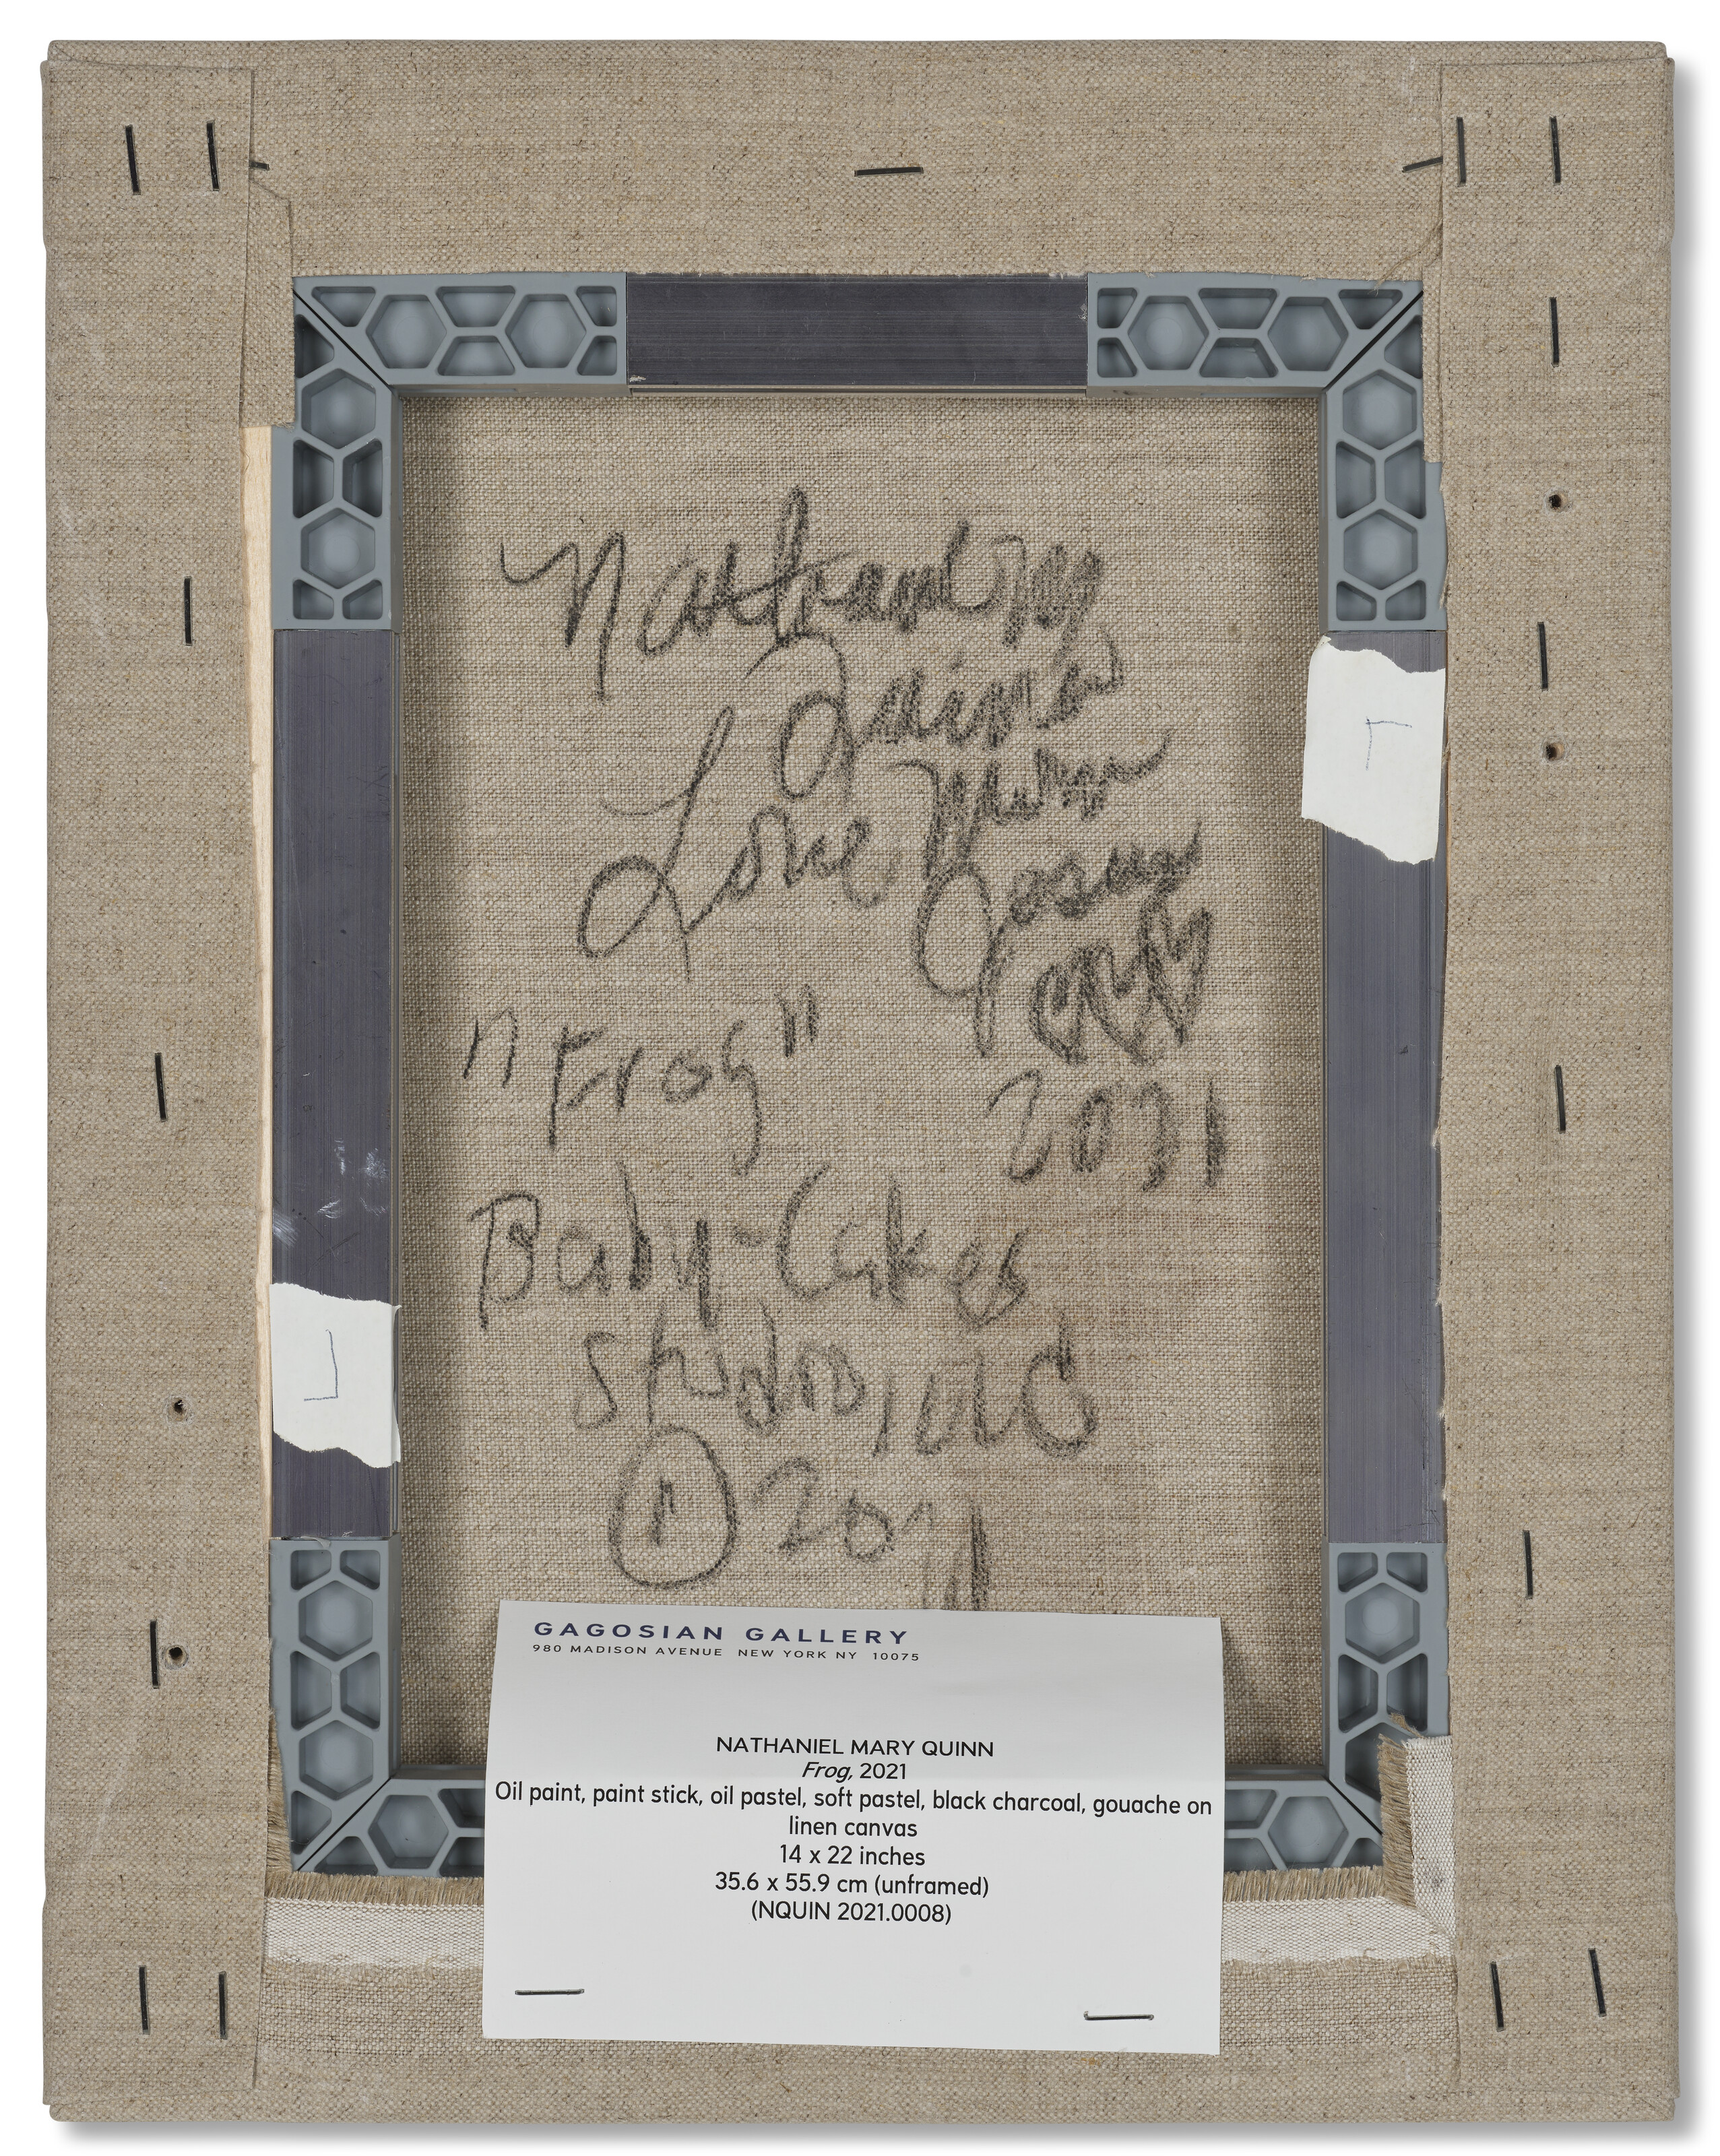 Nathaniel Mary
Quinn
Love
"Frog"
2021
Baby-Cakes
Studio, LLC
201
GAGOSIAN GALLERY
980 MADISON AVENUE NEW YORK NY 10075
NATHANIEL MARY QUINN
Frog, 2021
Oil paint, paint stick, oil pastel, soft pastel, black charcoal, gouache on
linen canvas
14 x 22 inches
35.6 x 55.9 cm (unframed)
(NQUIN 2021.0008)